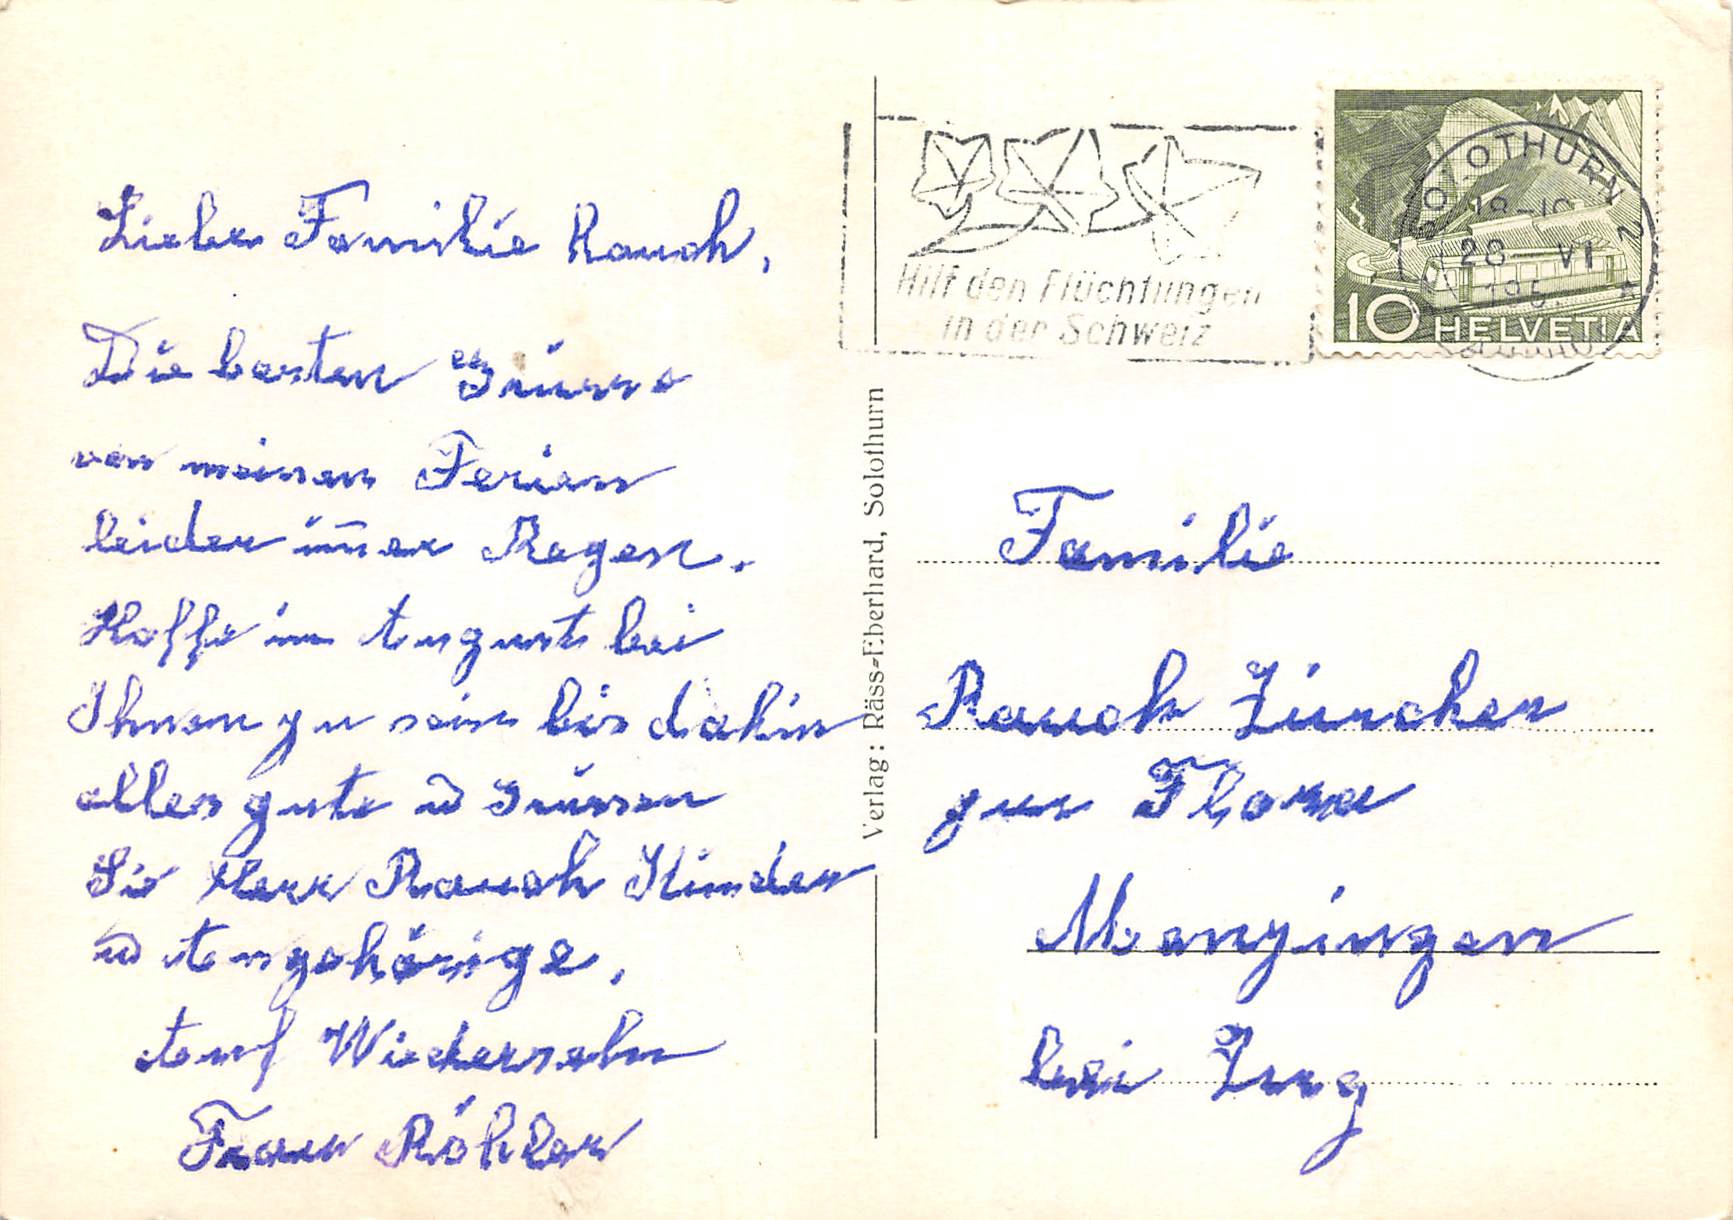 Liebe Familie Rauch,
Die besten Grüsse
von meinen Ferien
leider im̄er Regen.
Hoffe im August bei
Ihnen zu sein bis dahin
alles gute u Grüssen
Sie Herr Rauch Kinder
u Angehörige.
Auf Wiedersehn
Frau Röhler
Verlag: Räss-Eberhard, Solothurn
Hilf den Flüchtlingen
in der Schweiz
SOLOTHURN 2
28 VI
10 HELVETIA
Familie
Rauch Zürcher
zur Flora
Menzingen
bei Zug